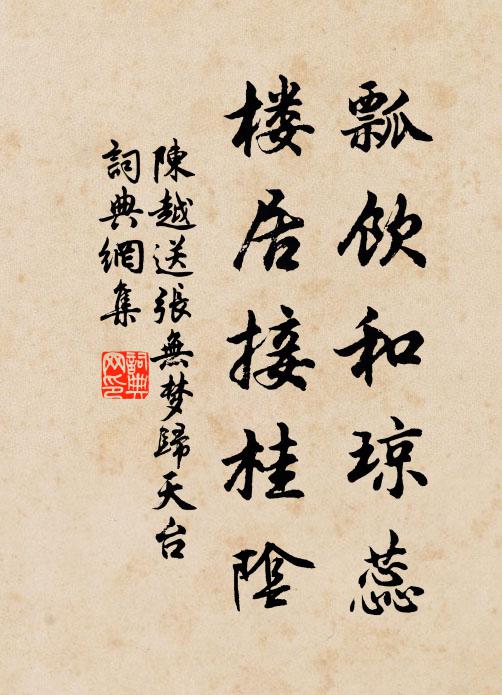 瓢飲和琼蕊
楼居接桂陰
陳越送張無梦歸天台
詞典網集
詞典网印